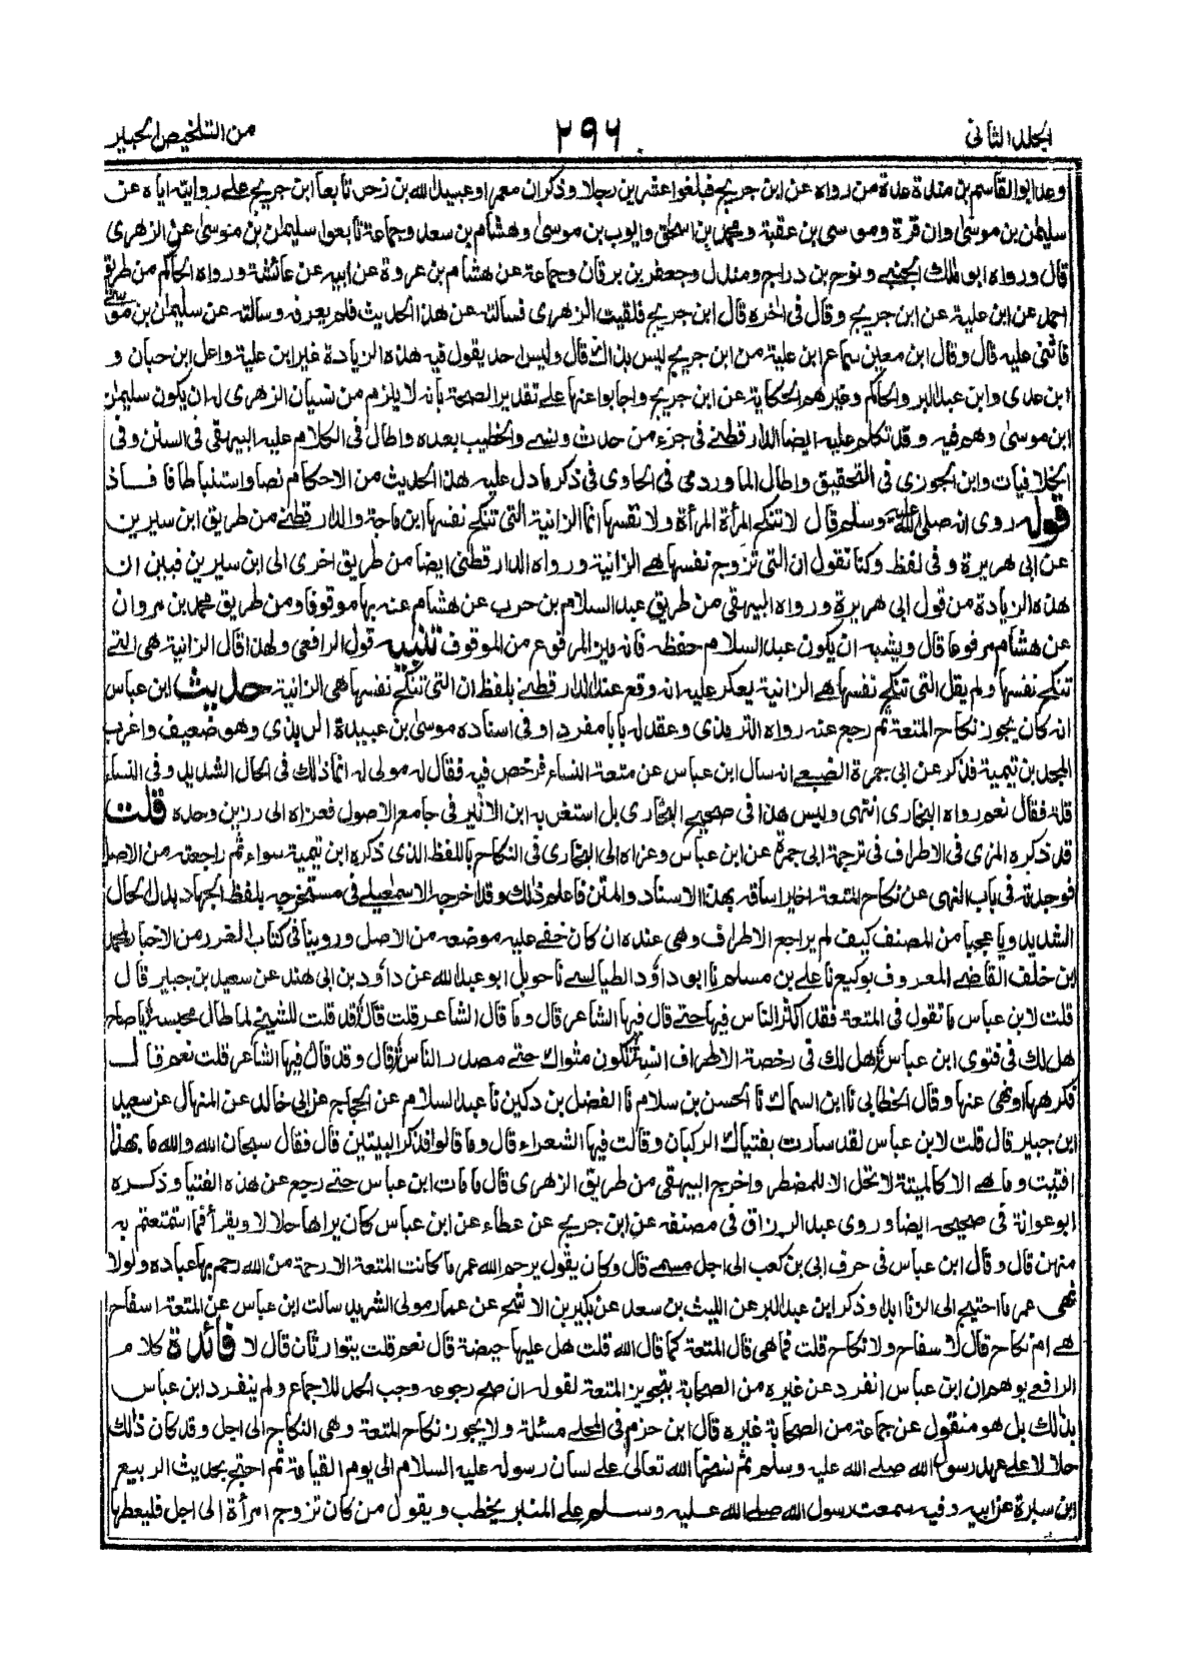 الجلد الثانى
٢٩٦
من التلخيص الحبير
وعد ابو القاسم بن مندة عدة من رواه عن ابن جريج فبلغوا عشرين رجلا وذكر ان معمرا وعبيد الله بن زحر تابعا ابن جريج على روايته اياه عن
سليمن بن موسىٰ وان قرة وموسى بن عقبة ومحمد بن اسحٰق وايوب بن موسىٰ وهشام بن سعد وجماعة تابعوا سليمٰن بن موسىٰ عن الزهرى
قال ورواه ابو مٰلك الجنبى ونوح بن دراج ومندل وجعفر بن برقان وجماعة عن هشام بن عروة عن ابيه عن عائشة ورواه الحاكم من طريق
احمد عن ابن علية عن ابن جريج وقال فى اٰخره قال ابن جريج فلقيت الزهرى فسالته عن هذا الحديث فلم يعرفه وسالته عن سليمٰن بن موسى
فاثنى عليه قال وقال ابن معين سماع ابن علية من ابن جريج ليس بذاك قال وليس احد يقول فيه هذه الزيادة غير ابن علية واعل ابن حبان و
ابن عدى وابن عبد البر والحاكم وغيرهم الحكاية عن ابن جريج واجابوا عنها على تقدير الصحة بانه لا يلزم من نسيان الزهرى له ان يكون سليمٰن
ابن موسىٰ وهم فيه وقد تكلم عليه ايضا الدارقطنى فى جزء من حدث ونسى والخطيب بعده واطال فى الكلام عليه البيهقى فى السنن وفى
الخلافيات وابن الجوزى فى التحقيق واطال الماوردى فى الحاوى فى ذكر ما دل عليه هذا الحديث من الاحكام نصا واستنباطا فافاد
قوله روى انه صلى الله عليه وسلم قال لا تنكح المرأة المرأة ولا نفسها انما الزانية التى تنكح نفسها ابن ماجة والدارقطنى من طريق ابن سيرين
عن ابى هريرة وفى لفظ وكنا نقول ان التى تزوج نفسها هى الزانية ورواه الدارقطنى ايضا من طريق اخرى الى ابن سيرين فبين ان
هذه الزيادة من قول ابى هريرة ورواه البيهقى من طريق عبد السلام بن حرب عن هشام عنه بها موقوفا ومن طريق محمد بن مروان
عن هشام مرفوعا قال ويشبه ان يكون عبد السلام حفظه فانه ميز المرفوع من الموقوف تنبيه قول الرافعى ولهذا قال الزانية هى التى
تنكح نفسها ولم يقل التى تنكح نفسها هى الزانية يعكر عليه انه وقع عند الدارقطنى بلفظ ان التى تنكح نفسها هى الزانية حديث ابن عباس
انه كان يجوز نكاح المتعة ثم رجع عنه رواه الترمذى وعقد له بابا مفردا وفى اسناده موسىٰ بن عبيدة الربذى وهو ضعيف واغرب
المجد بن تيمية فذكر عن ابى جمرة الضبعى انه سال ابن عباس عن متعة النساء فرخص فيه فقال له مولى له انما ذٰلك فى الحال الشديد وفى النساء
قلة فقال نعم رواه البخارى انتهى وليس هذا فى صحيح البخارى بل استغربه ابن الاثير فى جامع الاصول فعزاه الى رزين وحده قلت
قد ذكره المزى فى الاطراف فى ترجمة ابى جمرة عن ابن عباس وعزاه الى البخارى فى النكاح باللفظ الذى ذكره ابن تيمية سواء ثم راجعته من الاصل
فوجدته فى باب النهى عن نكاح المتعة اخيرا ساقه بهذا الاسناد والمتن فاعلم ذٰلك وقد اخرجه الاسمٰعيلى فى مستخرجه بلفظ الجهاد بدل الحال
الشديد ويا عجبا من المصنف كيف لم يراجع الاطراف وهى عنده ان كان خفى عليه موضعه من الاصل وروينا فى كتاب الغرر من الاخبار لمحمد
بن خلف القاضى المعروف بوكيع نا على بن مسلم نا ابو داؤد الطيالسى نا حويل ابو عبد الله عن داؤد بن ابى هند عن سعيد بن جبير قال
قلت لابن عباس ما تقول فى المتعة فقد اكثر الناس فيها حتى قال فيها الشاعر قال وما قال الشاعر قلت قال قد قلت للشيخ لما طال محبسه يا صاح
هل لك فى فتوى ابن عباس هل لك فى رخصة الاطراف انسة تكون مثواك حتى مصدر الناس قال وقد قال فيها الشاعر قلت نعم قال
فكرهها او نهى عنها وقال الخطابى نا ابن السماك نا الحسن بن سلام نا الفضل بن دكين نا عبد السلام عن الحجاج عن ابى خالد عن المنهال عن سعيد
ابن جبير قال قلت لابن عباس لقد سارت بفتياك الركبان وقالت فيها الشعراء قال وما قالوا فذكر البيتين قال فقال سبحان الله والله ما بهذا
افتيت وما هى الا كالميتة لا تحل الا للمضطر واخرج البيهقى من طريق الزهرى قال ما مات ابن عباس حتى رجع عن هذه الفتيا وذكره
ابو عوانة فى صحيحه ايضا وروى عبد الرزاق فى مصنفه عن ابن جريج عن عطاء عن ابن عباس كان يراها حلالا ويقرأ فما استمتعتم به
منهن قال وقال ابن عباس فى حرف ابى بن كعب الى اجل مسمى قال وكان يقول يرحم الله عمر ما كانت المتعة الا رحمة من الله رحم بها عباده ولولا
نهى عمر ما احتيج الى الزنا ابدا وذكر ابن عبد البر عن الليث بن سعد عن بكير بن الاشج عن عمار مولى الشريد سالت ابن عباس عن المتعة اسفاح
هى ام نكاح قال لا سفاح ولا نكاح قلت فما هى قال المتعة كما قال الله قلت هل عليها حيضة قال نعم قلت يتوارثان قال لا فائدة كلام
الرافعى يوهم ان ابن عباس انفرد عن غيره من الصحابة بتجويز المتعة لقوله ان صح رجوعه وجب الحد للاجماع ولم ينفرد ابن عباس
بذٰلك بل هو منقول عن جماعة من الصحابة غيره قال ابن حزم فى المحلى مسئلة ولا يجوز نكاح المتعة وهى النكاح الى اجل وقد كان ذٰلك
حلالا على عهد رسول الله صلى الله عليه وسلم ثم نسخها الله تعالى على لسان رسوله عليه السلام الى يوم القيامة ثم احتج بحديث الربيع
ابن سبرة عن ابيه وفيه سمعت رسول الله صلى الله عليه وسلم على المنبر يخطب ويقول من كان تزوج امرأة الى اجل فليعطها